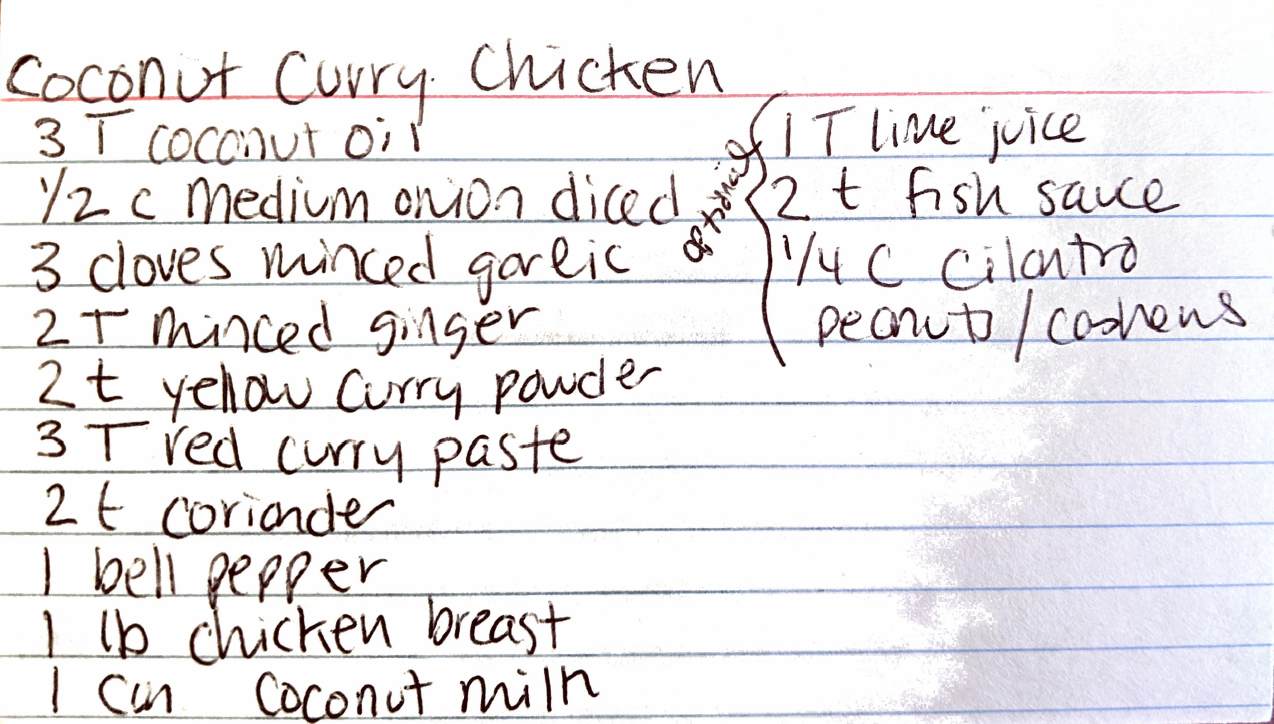 Coconut Curry Chicken
3 T coconut oil
1/2 c medium onion diced
3 cloves minced garlic
2 T minced ginger
2 t yellow curry powder
3 T red curry paste
2 t coriander
1 bell pepper
1 lb chicken breast
1 can coconut milk
optional
1 T lime juice
2 t fish sauce
1/4 C cilantro
peanuts/cashews